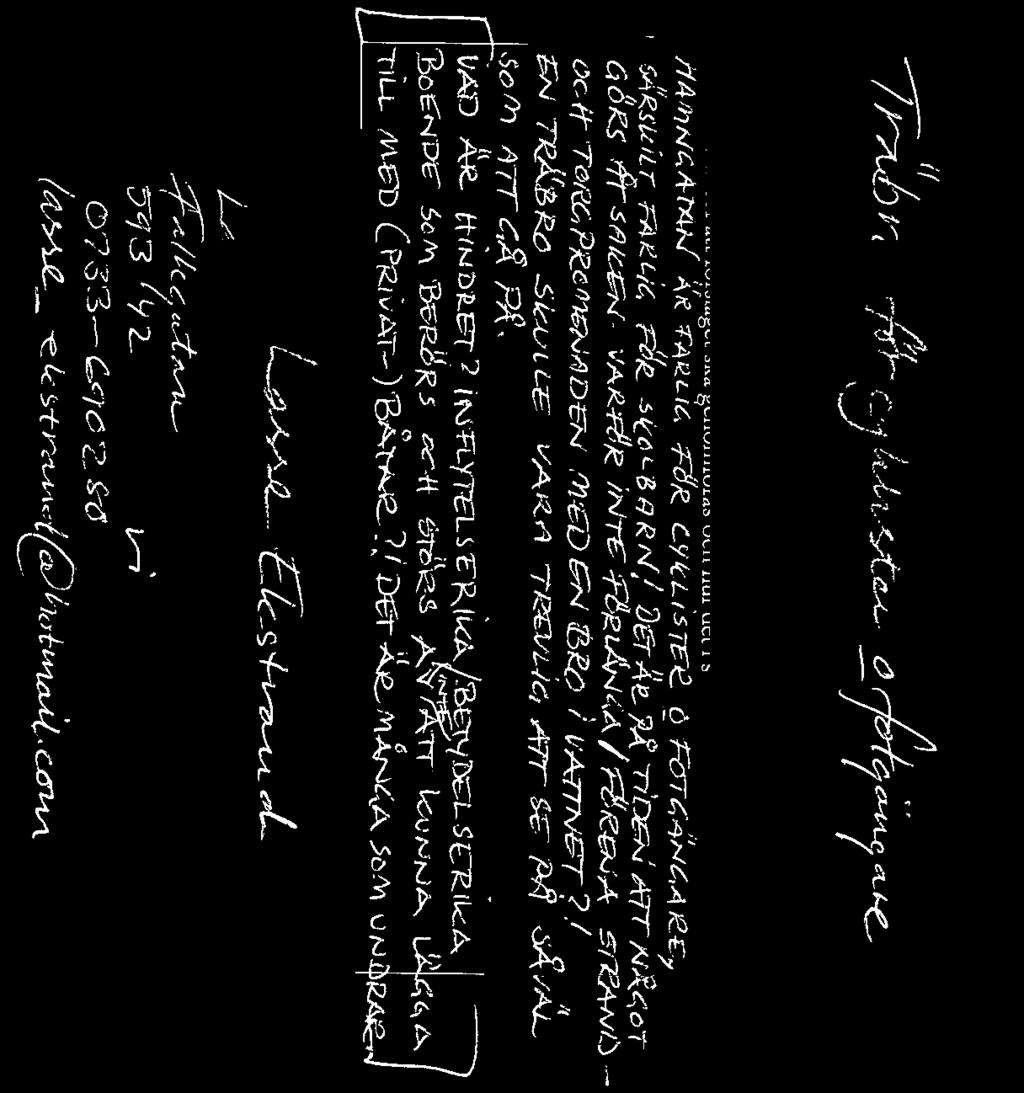 Träbro för cyklister o fotgängare
HAMNGATAN ÄR FARLIG FÖR CYKLISTER O FOTGÄNGARE,
SÄRSKILT FARLIG FÖR SKOLBARN! DET ÄR PÅ TIDEN ATT NÅGOT
GÖRS ÅT SAKEN. VARFÖR INTE FÖRLÄNGA/FÖRENA STRAND-
OCH TORGPROMENADEN MED EN BRO I VATTNET?!
EN TRÄBRO SKULLE VARA TREVLIG ATT SE PÅ SÅVÄL
SOM ATT GÅ PÅ.
VAD ÄR HINDRET? INFLYTELSERIKA/BETYDELSERIKA
BOENDE SOM BERÖRS OCH STÖRS AV ATT INTE KUNNA LÄGGA
TILL MED (PRIVAT-) BÅTAR?! DET ÄR MÅNGA SOM UNDRAR
Lasse Ekstrand
La
Falkgatan
593 42 Vi
0733-690280
lasse_ekstrand@hotmail.com